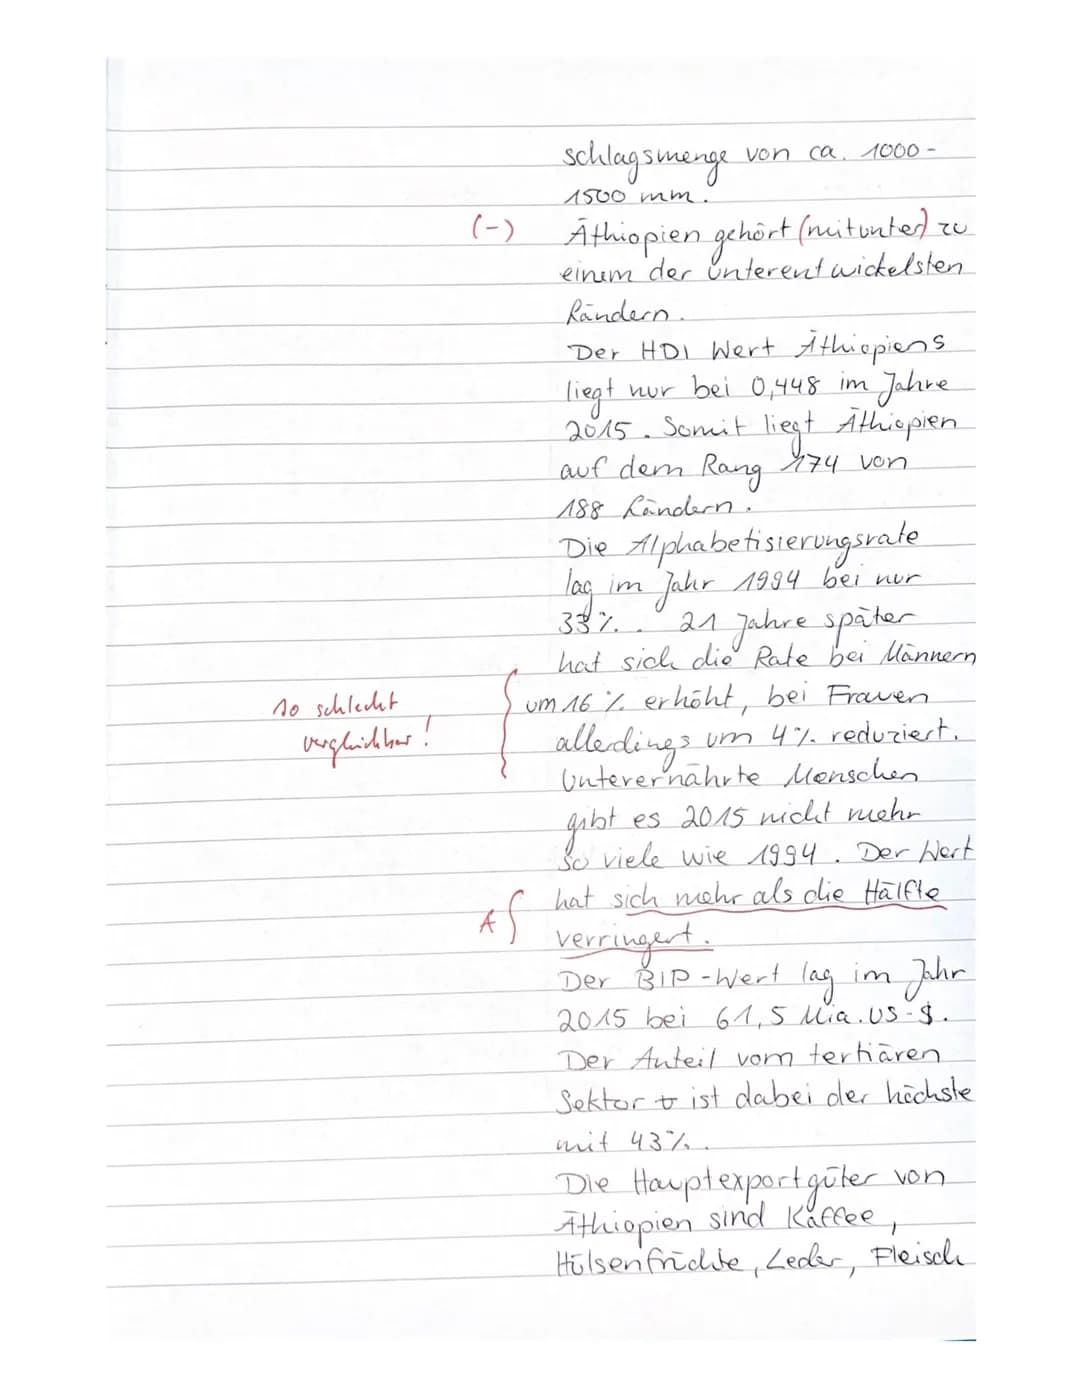 schlagsmenge von ca. 1000-
1500 mm.
(-) Äthiopien gehört (mitunter) zu
einem der unterentwickelsten
Ländern.
Der HDI Wert Äthiopiens
liegt nur bei 0,448 im Jahre
2015. Somit liegt Äthiopien
auf dem Rang 174 von
188 Ländern.
Die Alphabetisierungsrate
lag im Jahr 1994 bei nur
33%. 21 Jahre später
hat sich die Rate bei Männern
so schlecht um 16 % erhöht, bei Frauen
vergleichbar! allerdings um 4% reduziert.
Unterernährte Menschen
gibt es 2015 nicht mehr
so viele wie 1994. Der Wert
A hat sich mehr als die Hälfte
verringert.
Der BIP-Wert lag im Jahr
2015 bei 61,5 Mia.US-$.
Der Anteil vom tertiären
Sektor ist dabei der höchste
mit 43%.
Die Hauptexportgüter von
Äthiopien sind Kaffee,
Hülsenfrüchte, Leder, Fleisch